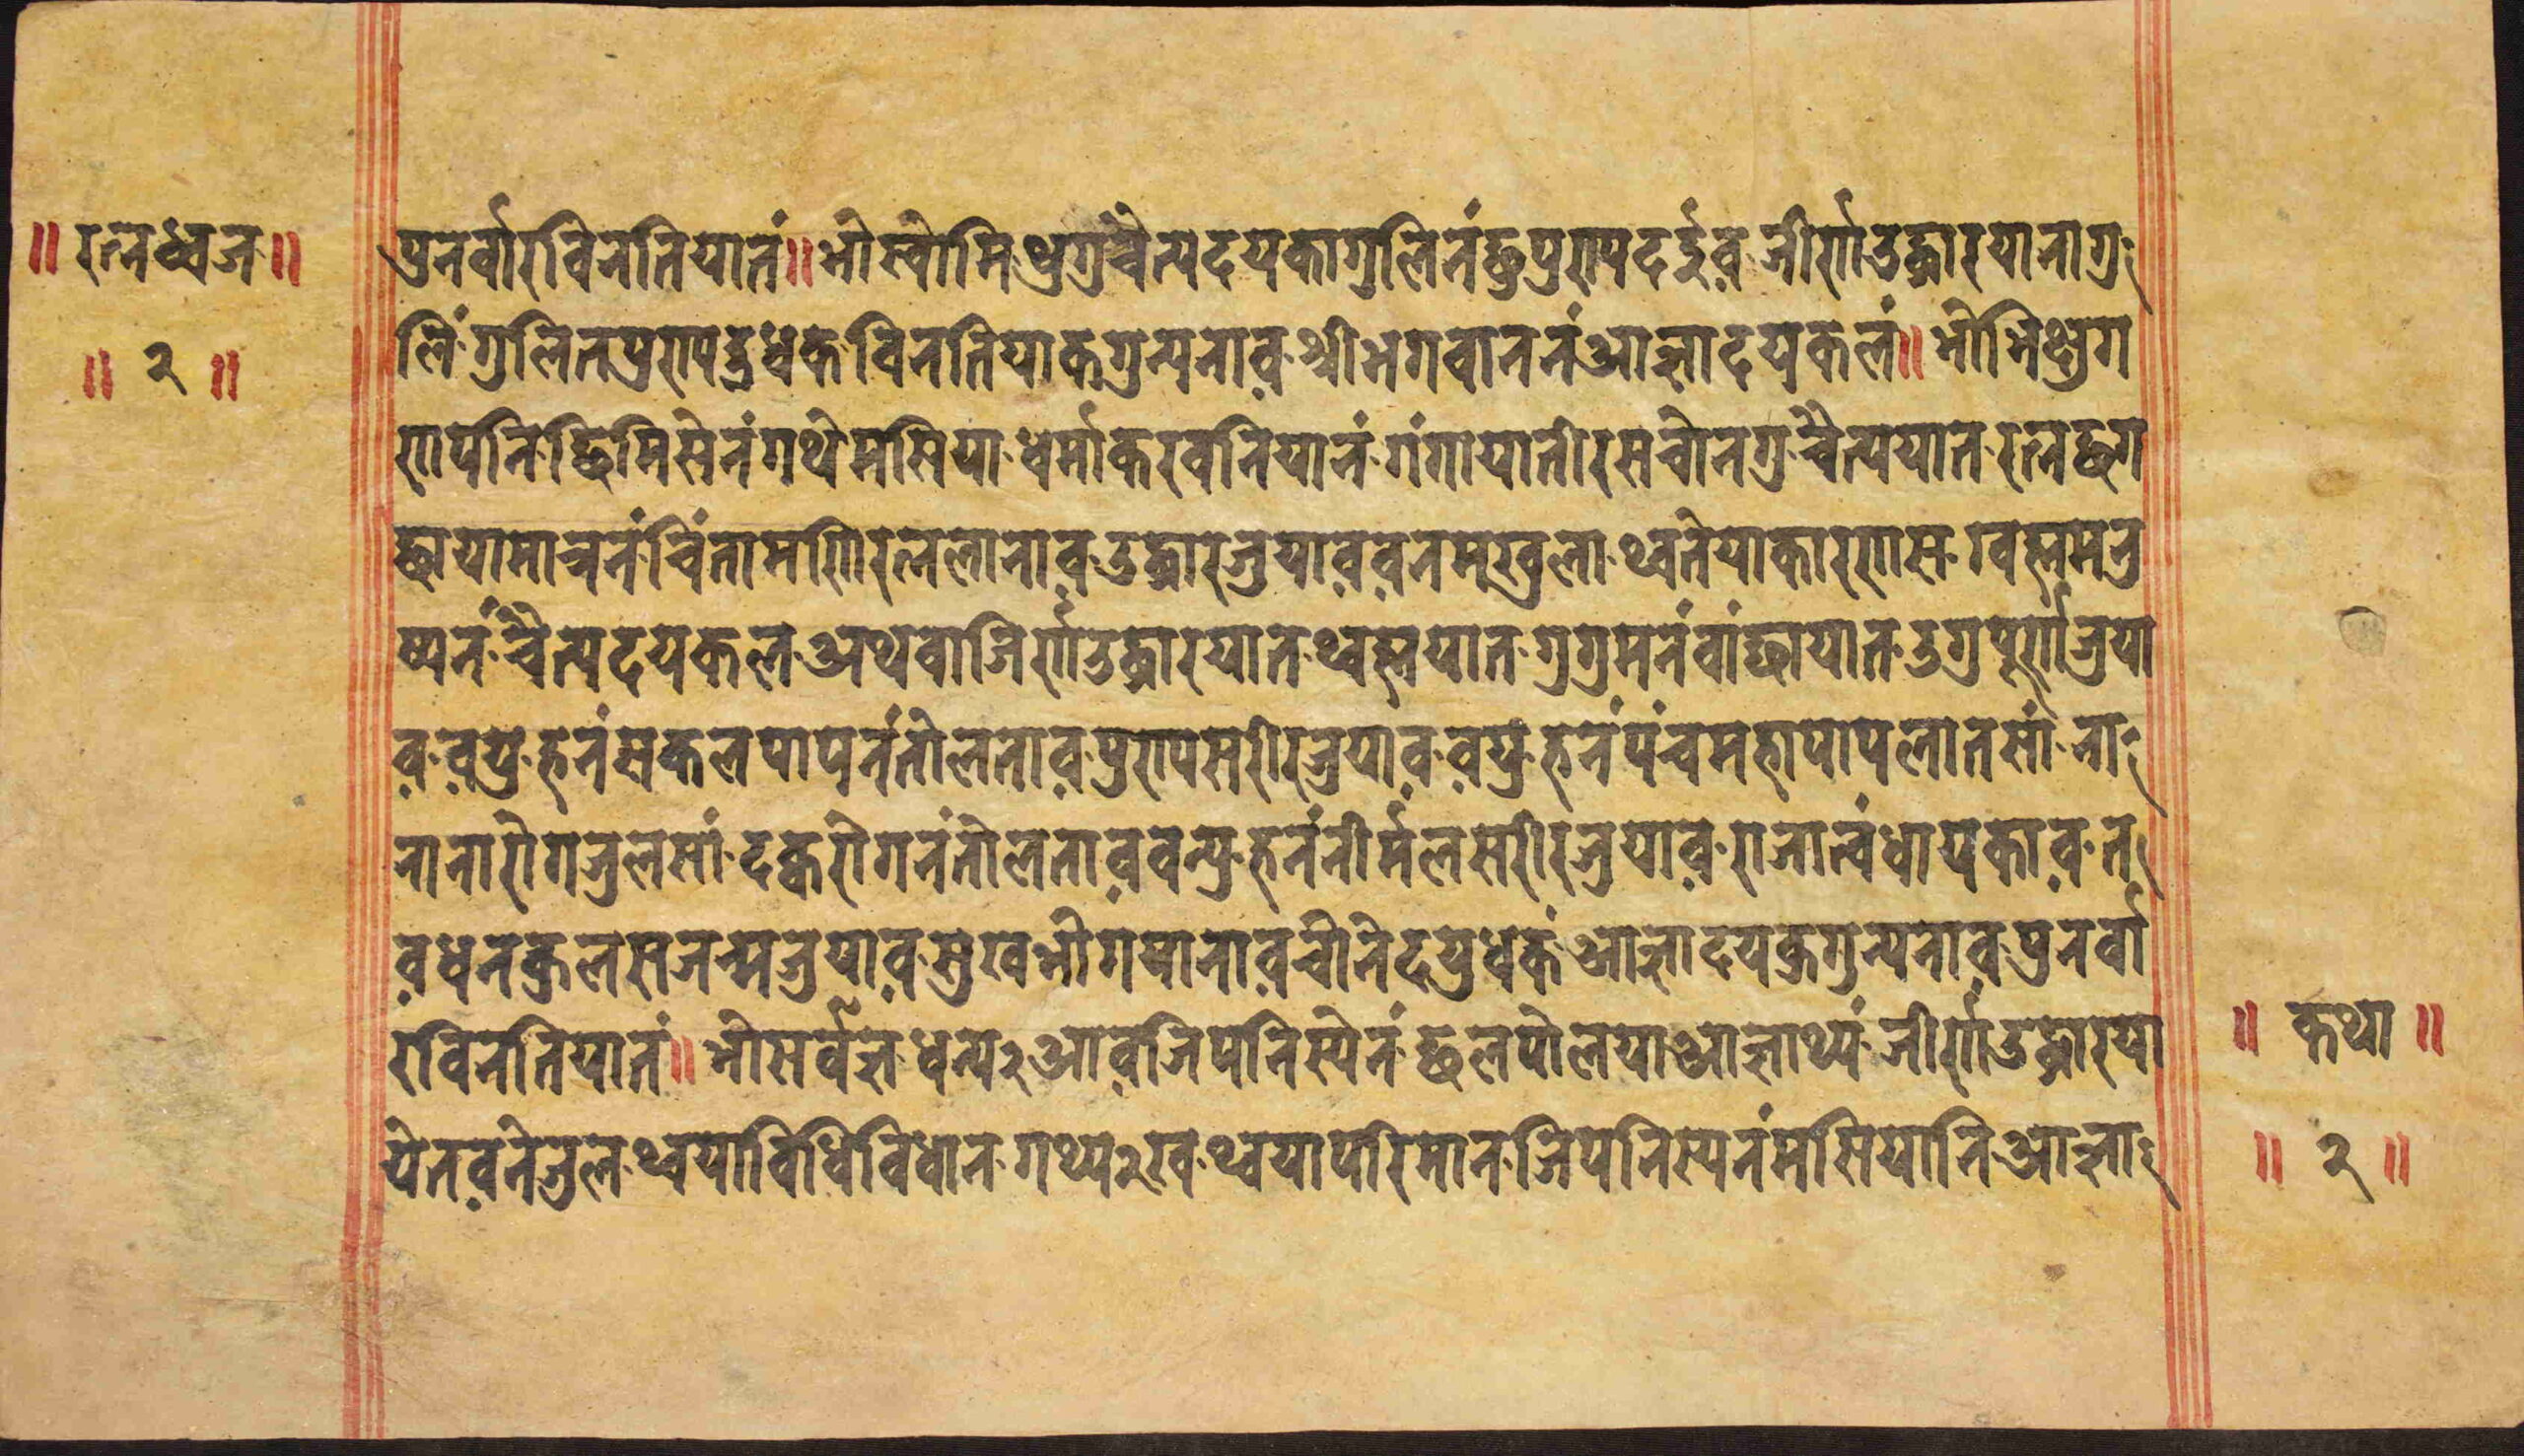 ॥ रत्नध्वज ॥
॥ २ ॥
पुनर्वार विनतियातं॥ भोस्वामि थुगु चैत्य दयका गुलिनं छु पुराय दर्इव़ जीर्णाउद्धारयानागु
लिं गुलित पुराय दु धकं विनतियाक गुन्यनाव़ श्रीभगवाननं आज्ञादयकलं॥ भोभिक्षुग
रापनि छिमिसेनं गथे मसिया धर्माकर वनियानं गंगायातीरसचोनगु चैत्ययात रत्नछग
छायामात्रनं चिंतामणिरत्नलानाव़ उद्धारजुयाव़ व़न मूखुला थ्वतेयाकारणस ग्वह्ममनु
ष्यनं चैत्यदयकल अथवा जिर्णाउद्धारयात थ्वह्मयात गुगु मनं वांछायात उगु पूर्णाजुया
व़ व़यु हनं सकल पापनं तोलताव़ पुरायसरीरजुयाव़ व़यु हनं पंचमहापापलातसां ना
नानारोगजुलसां दक्वरोगनं तोलताव़ वन्यु हनं नीर्मलसरीरजुयाव़ राजात्वं धायकाव़ त
व़धनकुलसजन्मजुयाव़ सुखभोगयानाव़ चोनेदयु धकं आज्ञादयकगुन्यनाव़ पुनर्वा
रविनतियातं॥ भोसर्वज्ञ धन्य२ आव़ जिपनिस्येनं छलपोलया आज्ञाथ्यं जीर्णाउद्धारया
येतव़नेजुल थ्वयाविधिविधान गथ्य२ख थ्वयापरिमान जिपनिस्यनं मसियानि आज्ञा
॥ कथा ॥
॥ २ ॥